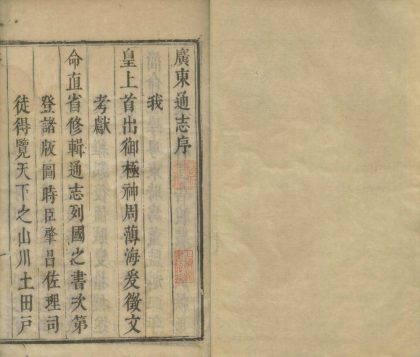 廣東通志序
我
皇上首出御極神周薄海爰徵文
考獻
命直省修輯通志列國之書次第
登諸版圖時臣肇昌佐理司
徒得覽天下之山川土田戸